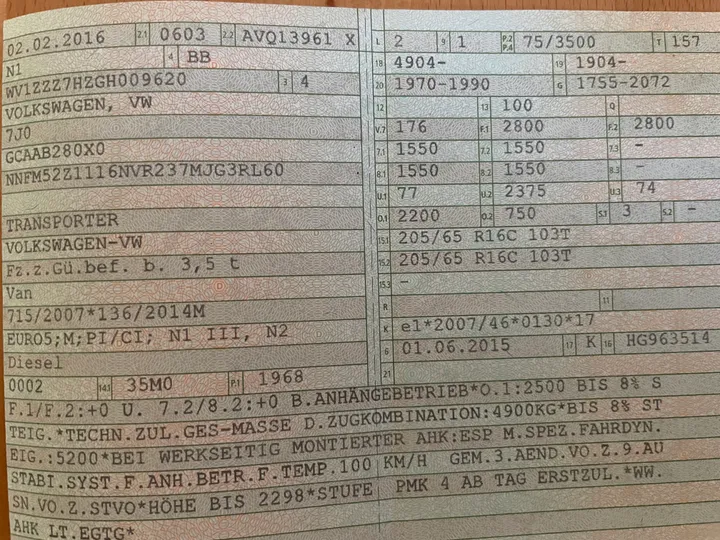 02.02.2016 2.1 0603 2.2 AVQ13961 X
N1 4 BB
WV1ZZZ7HZGH009620 3 4
VOLKSWAGEN, VW
7J0
GCAAB280X0
NNFM52Z1116NVR237MJG3RL60
TRANSPORTER
VOLKSWAGEN-VW
Fz.z.Gü.bef. b. 3,5 t
Van
715/2007*136/2014M
EURO5;M;PI/CI; N1 III, N2
Diesel
0002 14.1 35M0 P.1 1968
L 2 9 1 P.2 P.4 75/3500 T 157
18 4904- 19 1904-
20 1970-1990 G 1755-2072
12 13 100 Q
V.7 176 F.1 2800 F.2 2800
7.1 1550 7.2 1550 7.3 -
8.1 1550 8.2 1550 8.3 -
U.1 77 U.2 2375 U.3 74
O.1 2200 O.2 750 S.1 3 S.2 -
15.1 205/65 R16C 103T
15.2 205/65 R16C 103T
15.3 -
R 11
K e1*2007/46*0130*17
6 01.06.2015 17 K 16 HG963514
21
F.1/F.2:+0 U. 7.2/8.2:+0 B.ANHÄNGEBETRIEB*O.1:2500 BIS 8% S
TEIG.*TECHN.ZUL.GES-MASSE D.ZUGKOMBINATION:4900KG*BIS 8% ST
EIG.:5200*BEI WERKSEITIG MONTIERTER AHK:ESP M.SPEZ.FAHRDYN.
STABI.SYST.F.ANH.BETR.F.TEMP.100 KM/H GEM.3.AEND.VO.Z.9.AU
SN.VO.Z.STVO*HÖHE BIS 2298*STUFE PMK 4 AB TAG ERSTZUL.*WW.
AHK LT.EGTG*